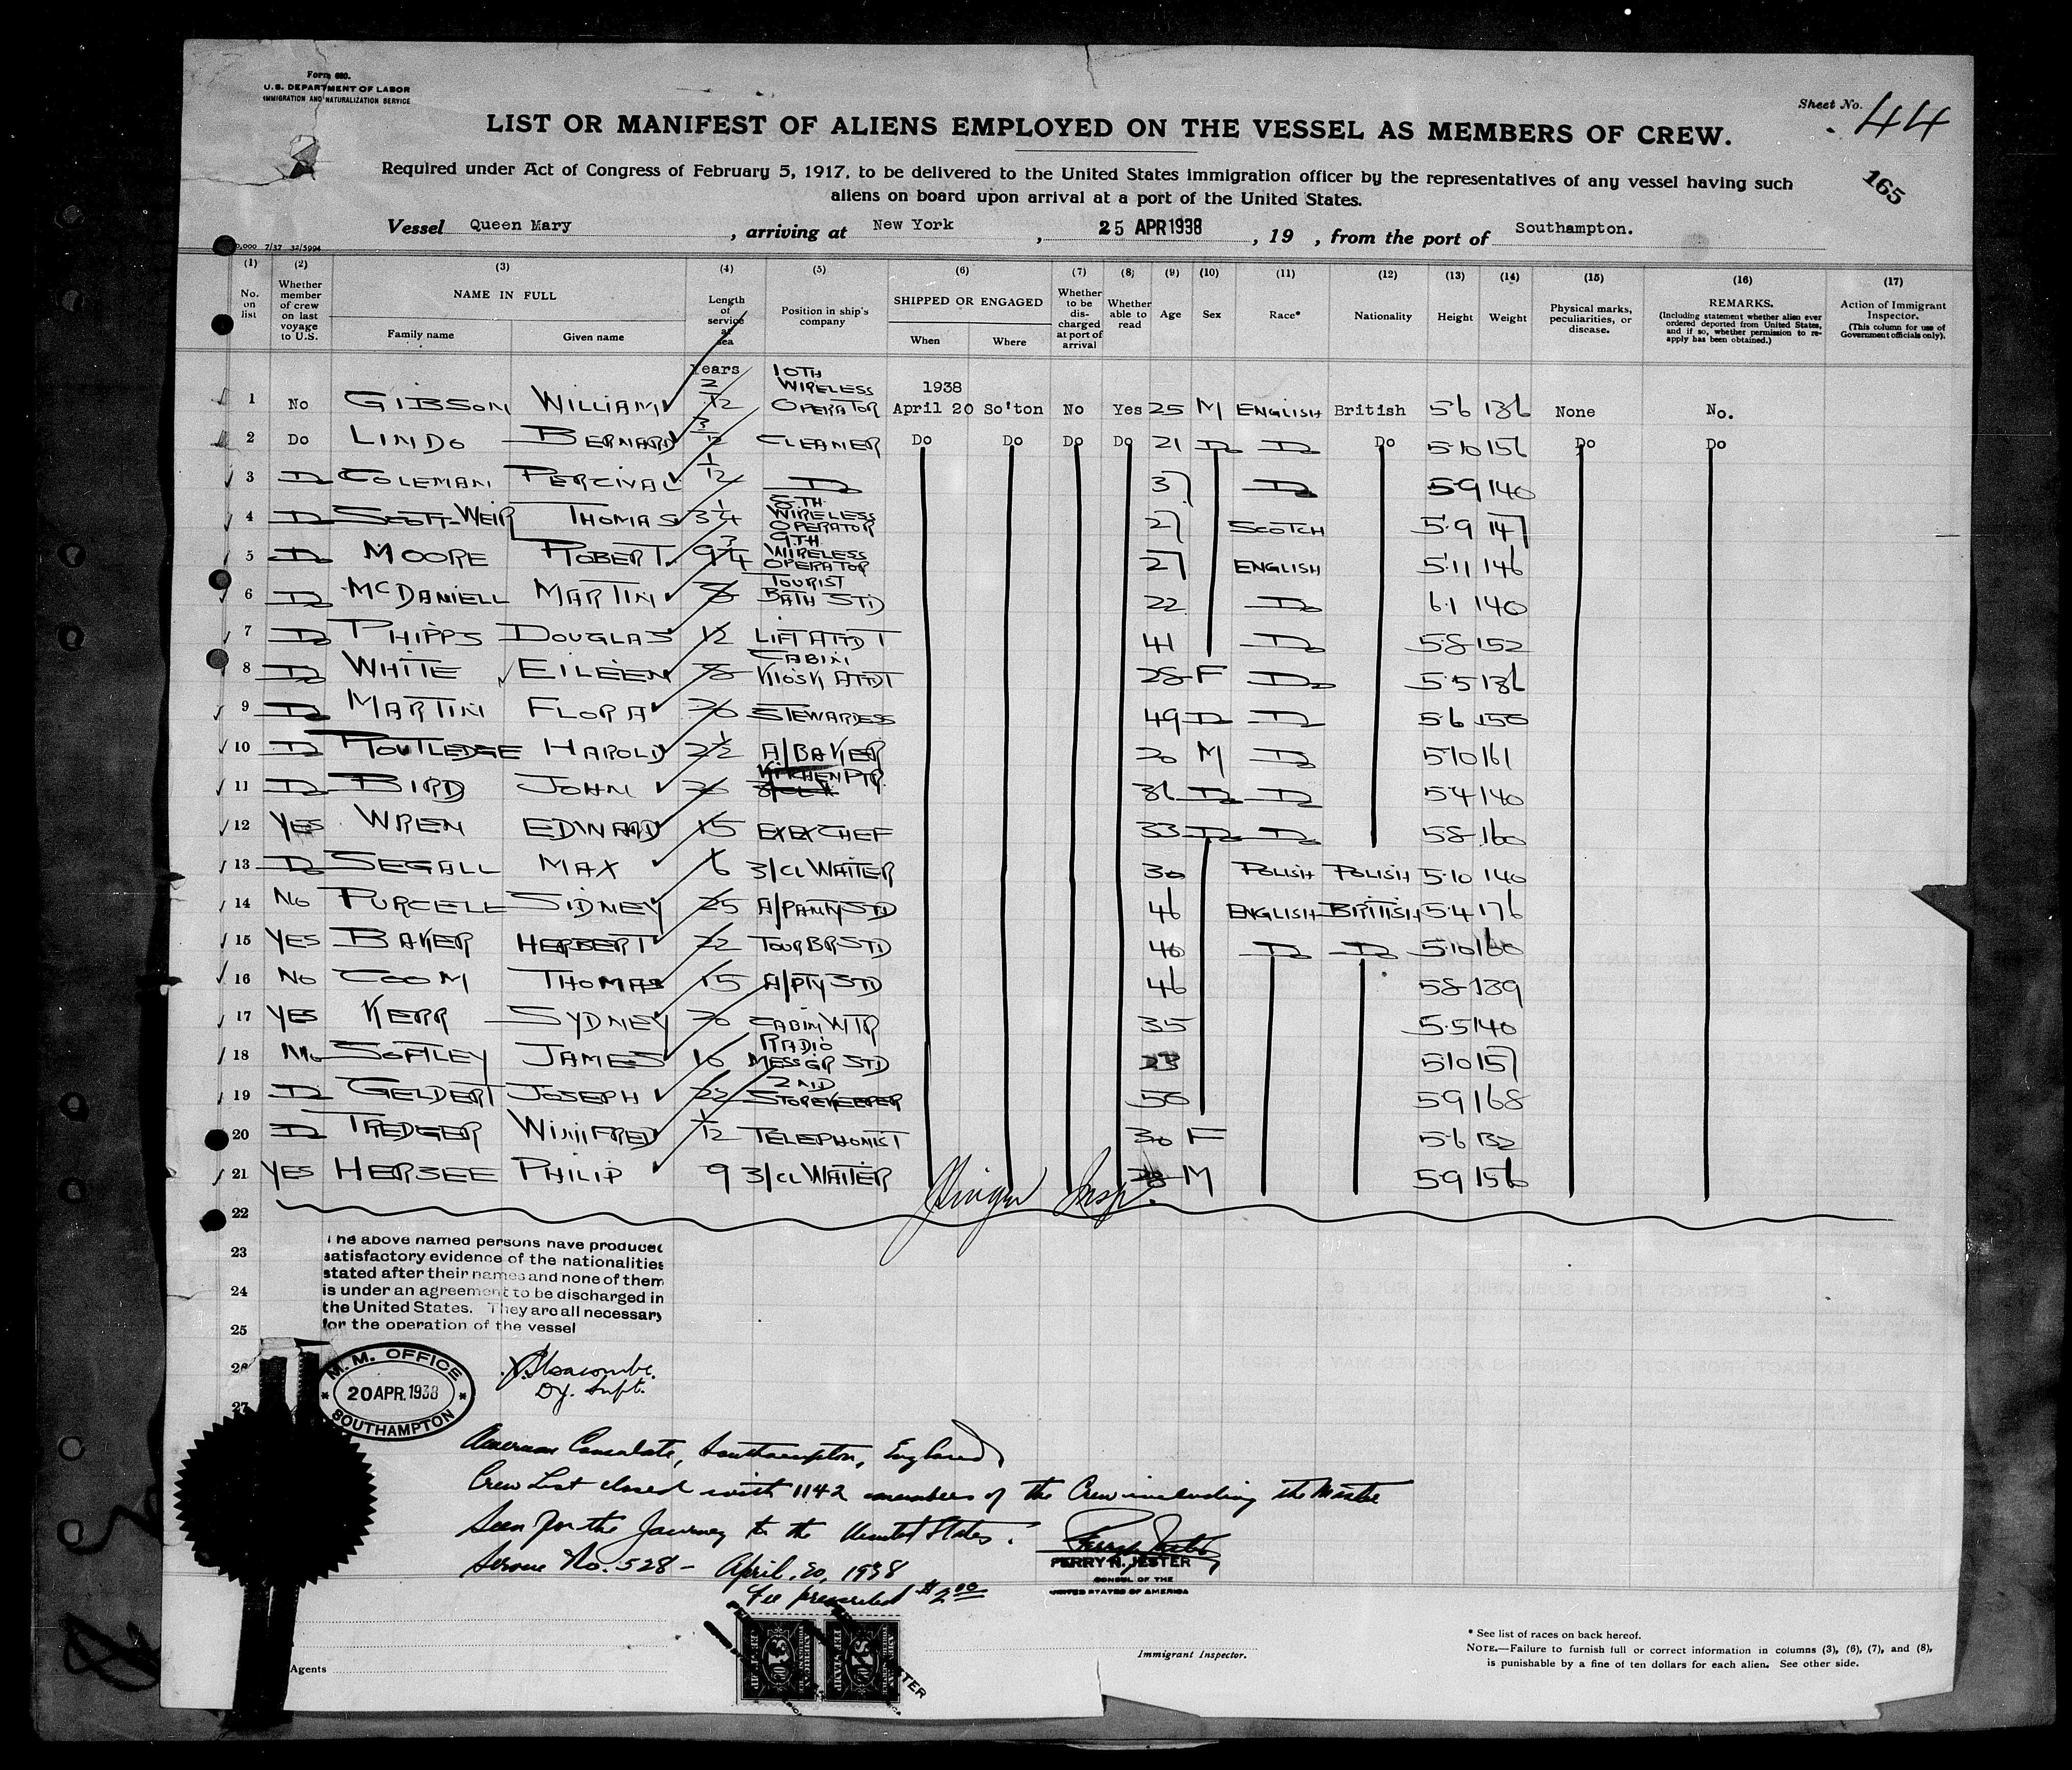 Form 680.
U.S. DEPARTMENT OF LABOR
IMMIGRATION AND NATURALIZATION SERVICE
Sheet No. 44
LIST OR MANIFEST OF ALIENS EMPLOYED ON THE VESSEL AS MEMBERS OF CREW.
165
Required under Act of Congress of February 5, 1917, to be delivered to the United States immigration officer by the representatives of any vessel having such
aliens on board upon arrival at a port of the United States.
Vessel Queen Mary, arriving at New York, 25 APR 1938, 19 , from the port of Southampton.
7/37 32/5994
(1) (2) (3) (4) (5) (6) (7) (8) (9) (10) (11) (12) (13) (14) (15) (16) (17)
No. on list
Whether member of crew on last voyage to U.S.
NAME IN FULL
Family name Given name
Length of service at sea
Position in ship's company
SHIPPED OR ENGAGED
When Where
Whether to be discharged at port of arrival
Whether able to read
Age Sex Race* Nationality Height Weight
Physical marks, peculiarities, or disease.
REMARKS.
(Including statement whether alien ever ordered deported from United States, and if so, whether permission to reapply has been obtained.)
Action of Immigrant Inspector.
(This column for use of Government officials only).
Years 10TH
2 WIRELESS 1938
1 No GIBSON WILLIAM 12 OPERATOR April 20 So'ton No Yes 25 M ENGLISH British 5 6 136 None No.
2 Do LINDO BERNARD 3/12 CLEANER Do Do Do Do 21 Do Do Do 5 10 156 Do Do
3 Do COLEMAN PERCIVAL 1/12 Do 37 Do 5 9 140
4 Do SCOTT-WEIR THOMAS 3 1/4 8TH WIRELESS OPERATOR 27 SCOTCH 5.9 147
5 Do MOORE ROBERT. 9 3/4 9TH WIRELESS OPERATOR 27 ENGLISH 5.11 146
6 Do McDANIELL MARTIN TOURIST BATH STD 22 Do 6.1 140
7 Do PHIPPS DOUGLAS 12 LIFT ATTDT 41 Do 5 8 152
8 Do WHITE EILEEN 8 CABIN KIOSK ATTDT 28 F Do 5.5 136
9 Do MARTIN FLORA 20 STEWARDESS 49 Do Do 5.6 150
10 Do ROUTLEDGE HAROLD 2 1/2 A/BAKER 20 M Do 5 10 161
11 Do BIRD JOHN 20 KITCHEN PTR 36 Do Do 5 4 140
12 YES WREN EDWARD 15 EX CHEF 33 Do Do 5 8 160
13 Do SEGALL MAX 6 3/CL WAITER 30 POLISH POLISH 5.10 140
14 No PURCELL SIDNEY 25 A/PANTY STD 46 ENGLISH BRITISH 5.4 176
15 YES BAKER HERBERT 22 TOUR BR STD 40 Do Do 5.10 160
16 No COOM THOMAS 15 A/PTY STD 46 5 8 139
17 YES KERR SYDNEY 20 CABIN WTR 35 5.5 140
18 No SOFTLEY JAMES 10 RADIO MESSGR STD 23 5 10 157
19 Do GELDERT JOSEPH 22 2ND STOREKEEPER 50 5 9 168
20 Do TREDGER WINIFRED 1/12 TELEPHONIST 30 F 5.6 132
21 YES HERSEE PHILIP 9 3/CL WAITER 28 M 5 9 156
Insp.
22
23
24
25
26
27
The above named persons have produced
satisfactory evidence of the nationalities
stated after their names and none of them
is under an agreement to be discharged in
the United States. They are all necessary
for the operation of the vessel
M. M. OFFICE
20 APR. 1938
SOUTHAMPTON
Dy. Supt.
American Consulate, Southampton, England
Crew List closed with 1142 members of the Crew including the Master
Seen for the Journey to the United States.
Service No. 528 - April. 20, 1938
Fee prescribed $2.00
PERRY N. JESTER
CONSUL OF THE
UNITED STATES OF AMERICA
Agents
Immigrant Inspector.
* See list of races on back hereof.
NOTE.—Failure to furnish full or correct information in columns (3), (6), (7), and (8),
is punishable by a fine of ten dollars for each alien. See other side.